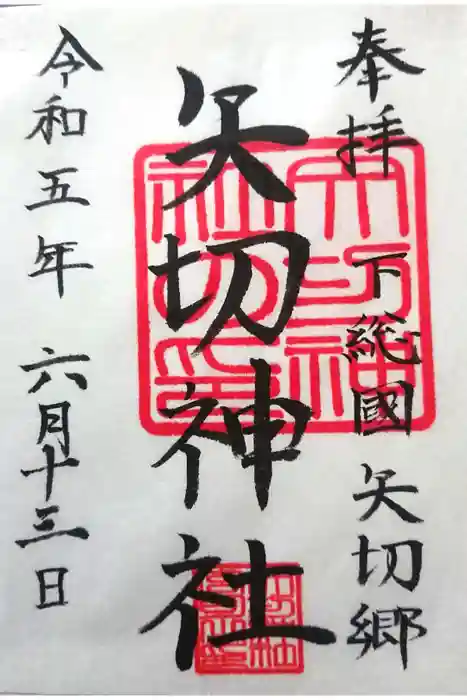 奉拝 下総國 矢切郷
矢切神社
令和五年 六月十三日